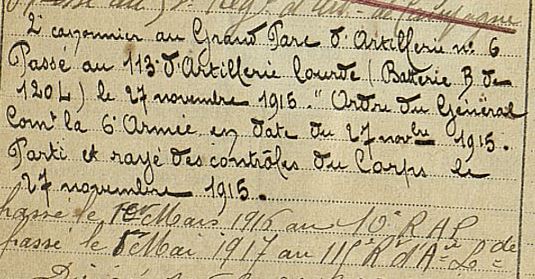 Passé au 5e Régt d'Art. de Campagne
2e canonnier au Grand Parc d'Artillerie n° 6
Passé au 113e d'Artillerie lourde (Batterie B de
120L) le 27 novembre 1915. " Ordre du Général
Comt la 6e Armée en date du 27 novbre 1915.
Parti et rayé des contrôles du Corps le
27 novembre 1915.
passé le 1er Mars 1916 au 10e R A P
passé le 8 Mai 1917 au 118e R d'Aie Lde